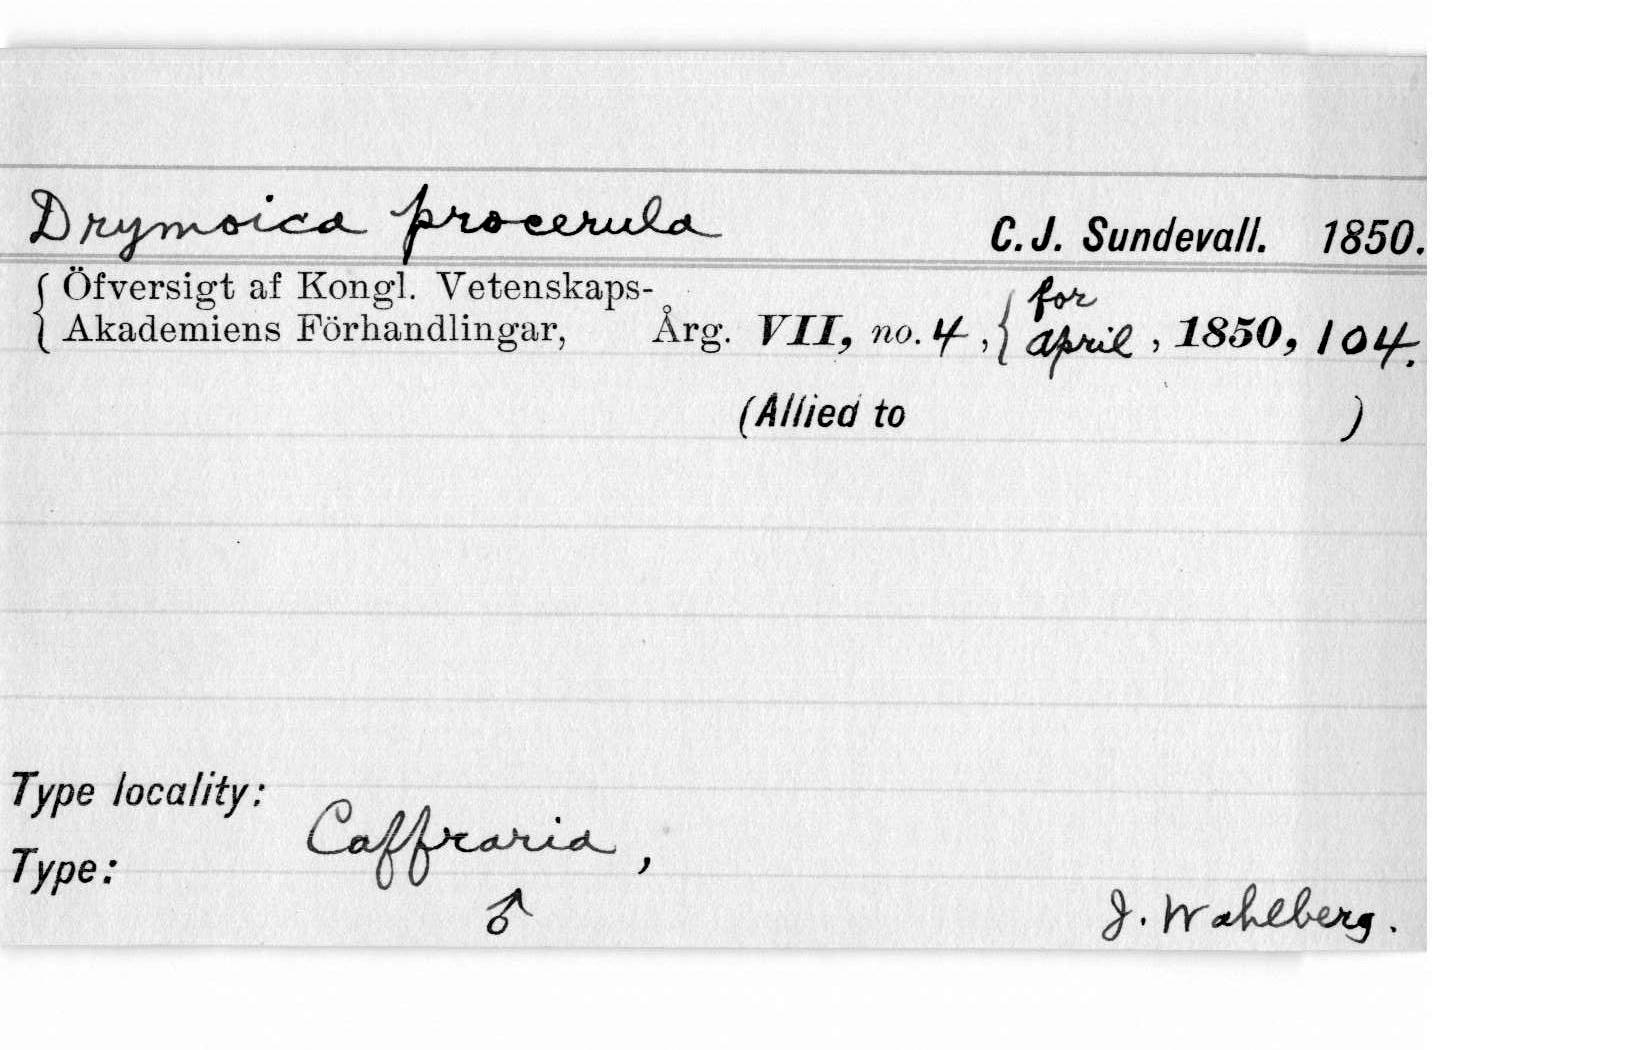 Drymoica procerula C. J. Sundevall. 1850.
{ Öfversigt af Kongl. Vetenskaps-
Akademiens Förhandlingar, Årg. VII, no. 4, { for April, 1850, 104.
(Allied to )
Type locality:
Caffraria,
Type:
♂ J. Wahlberg.